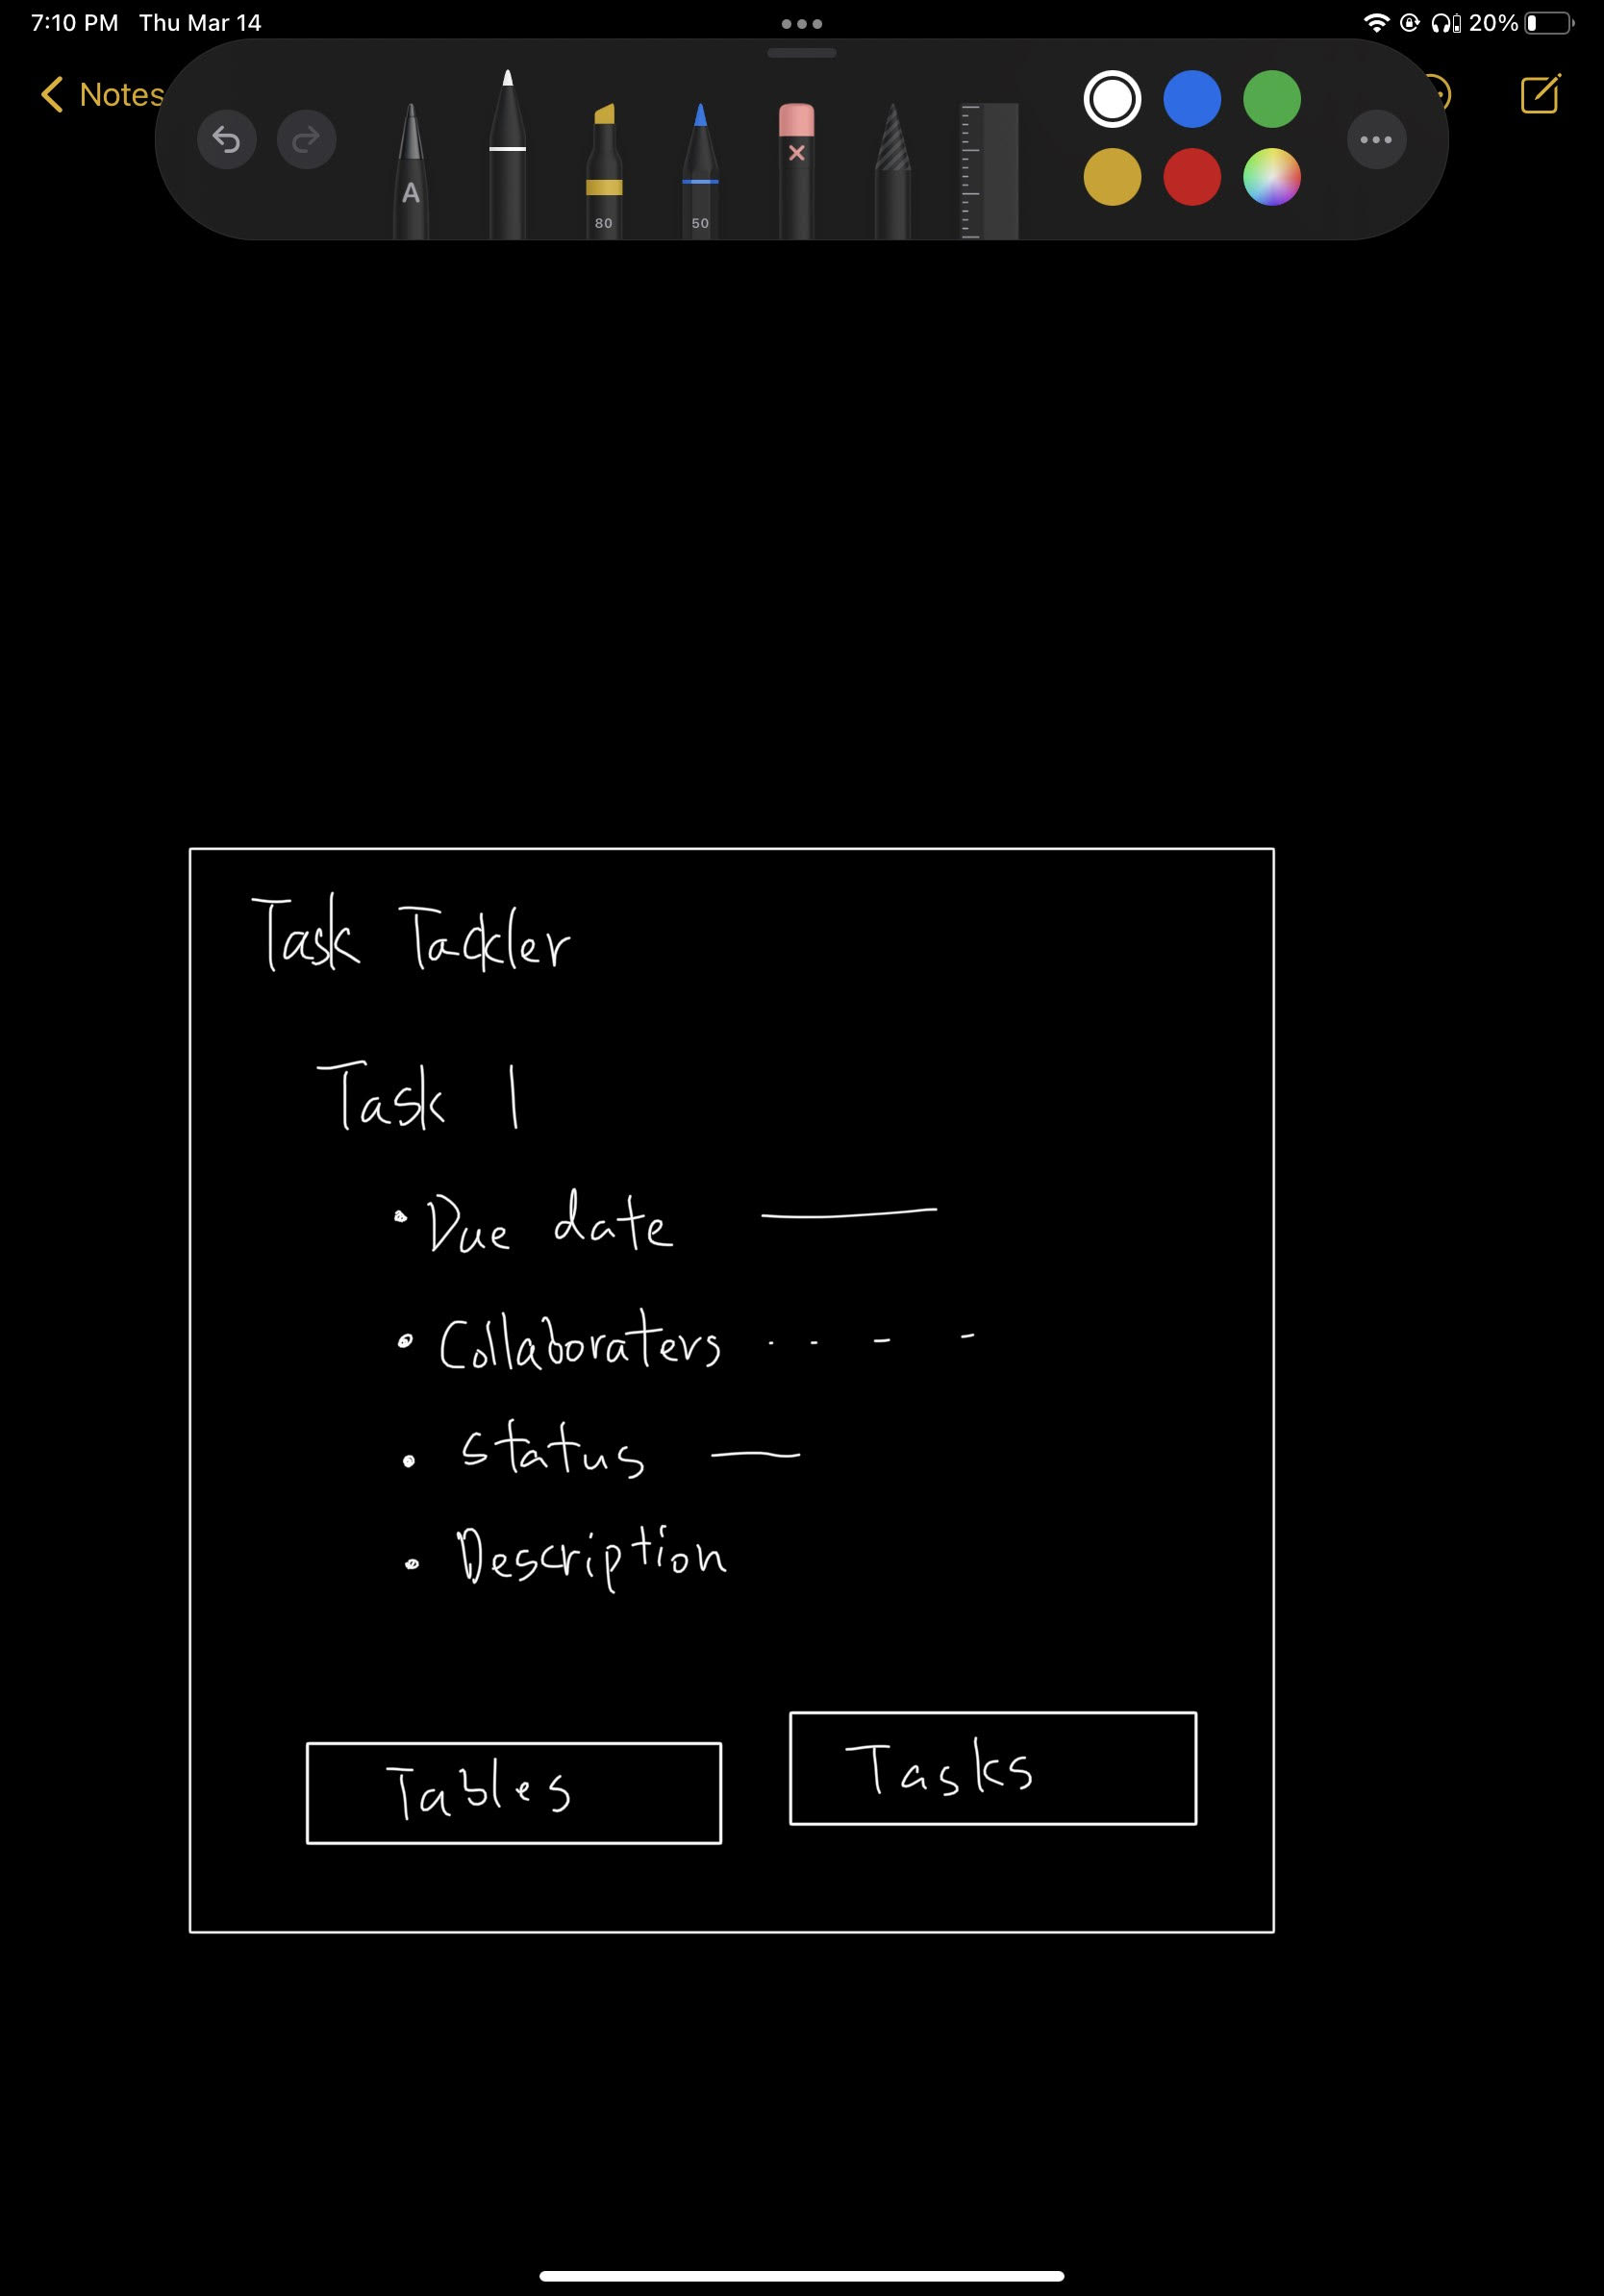 7:10 PM Thu Mar 14
20%
Notes
A
80
50
Task Tackler
Task 1
• Due date
• Collaboraters
• status
• Description
Tables
Tasks